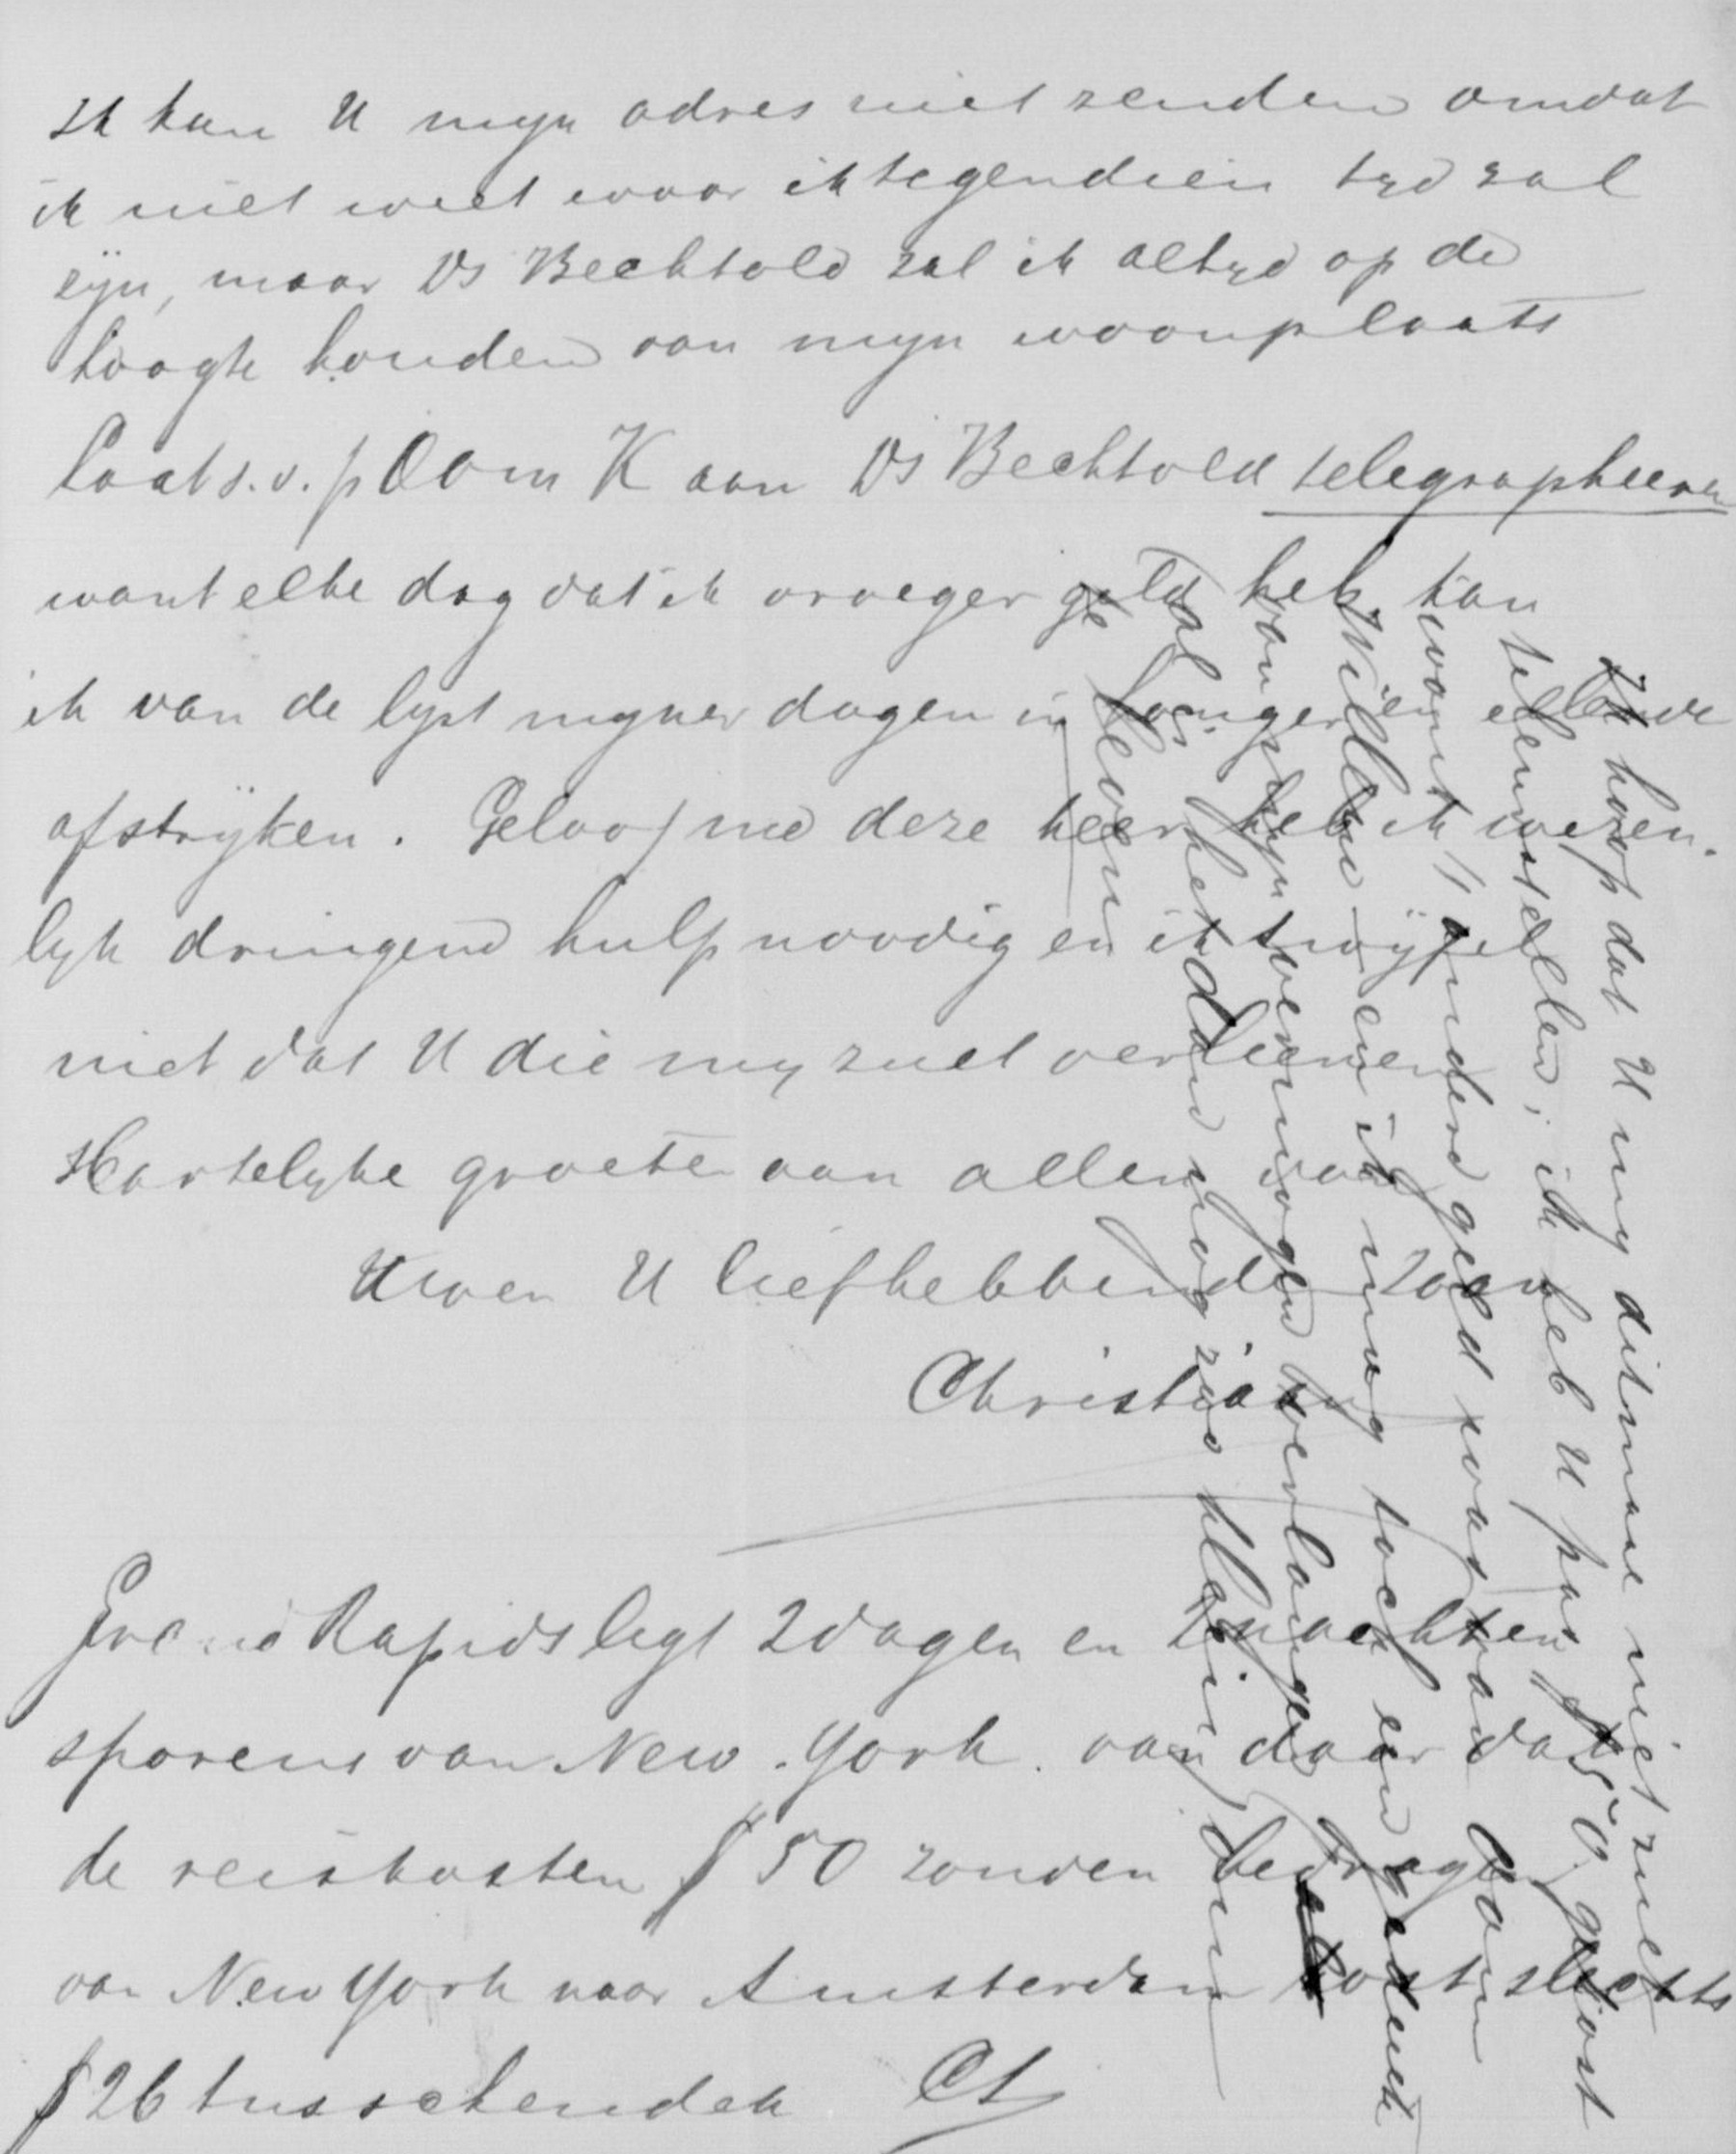 Ik kan U mijn adres niet zenden omdat
ik niet weet waar ik tegen dien tyd zal
zijn, maar Ds Bechtold zal ik altyd op de
hoogte houden van mijn woonplaats
Laat s.v.p Oom K aan Ds Bechtold telegrapheeren
want elke dag dat ik vroeger geld heb kan
ik van de lyst myner dagen in honger en ellende
afstrijken. Geloof me deze keer heb ik wezen-
lyk dringend hulp noodig en ik twijfel
niet dat U die my zult verleenen
Hartelyke groeten aan allen van
Uwen U liefhebbenden zoon
Christiaan
Grand Rapids ligt 2 dagen en 2 nachten
sporens van New-York. van daar dat
de reiskosten $ 50 zouden bedragen
van New York naar Amsterdam kost slechts
$ 26 tusschendek Ch
Ik hoop dat U my ditmaal niet zult
teleurstellen; ik heb U pas $50. gekost
want 't andere geld was van Oom
Willem en ik mag toch een gedeelte
van zyn vermogen verlangen
al is het dan nog zoo klein, om
te leven